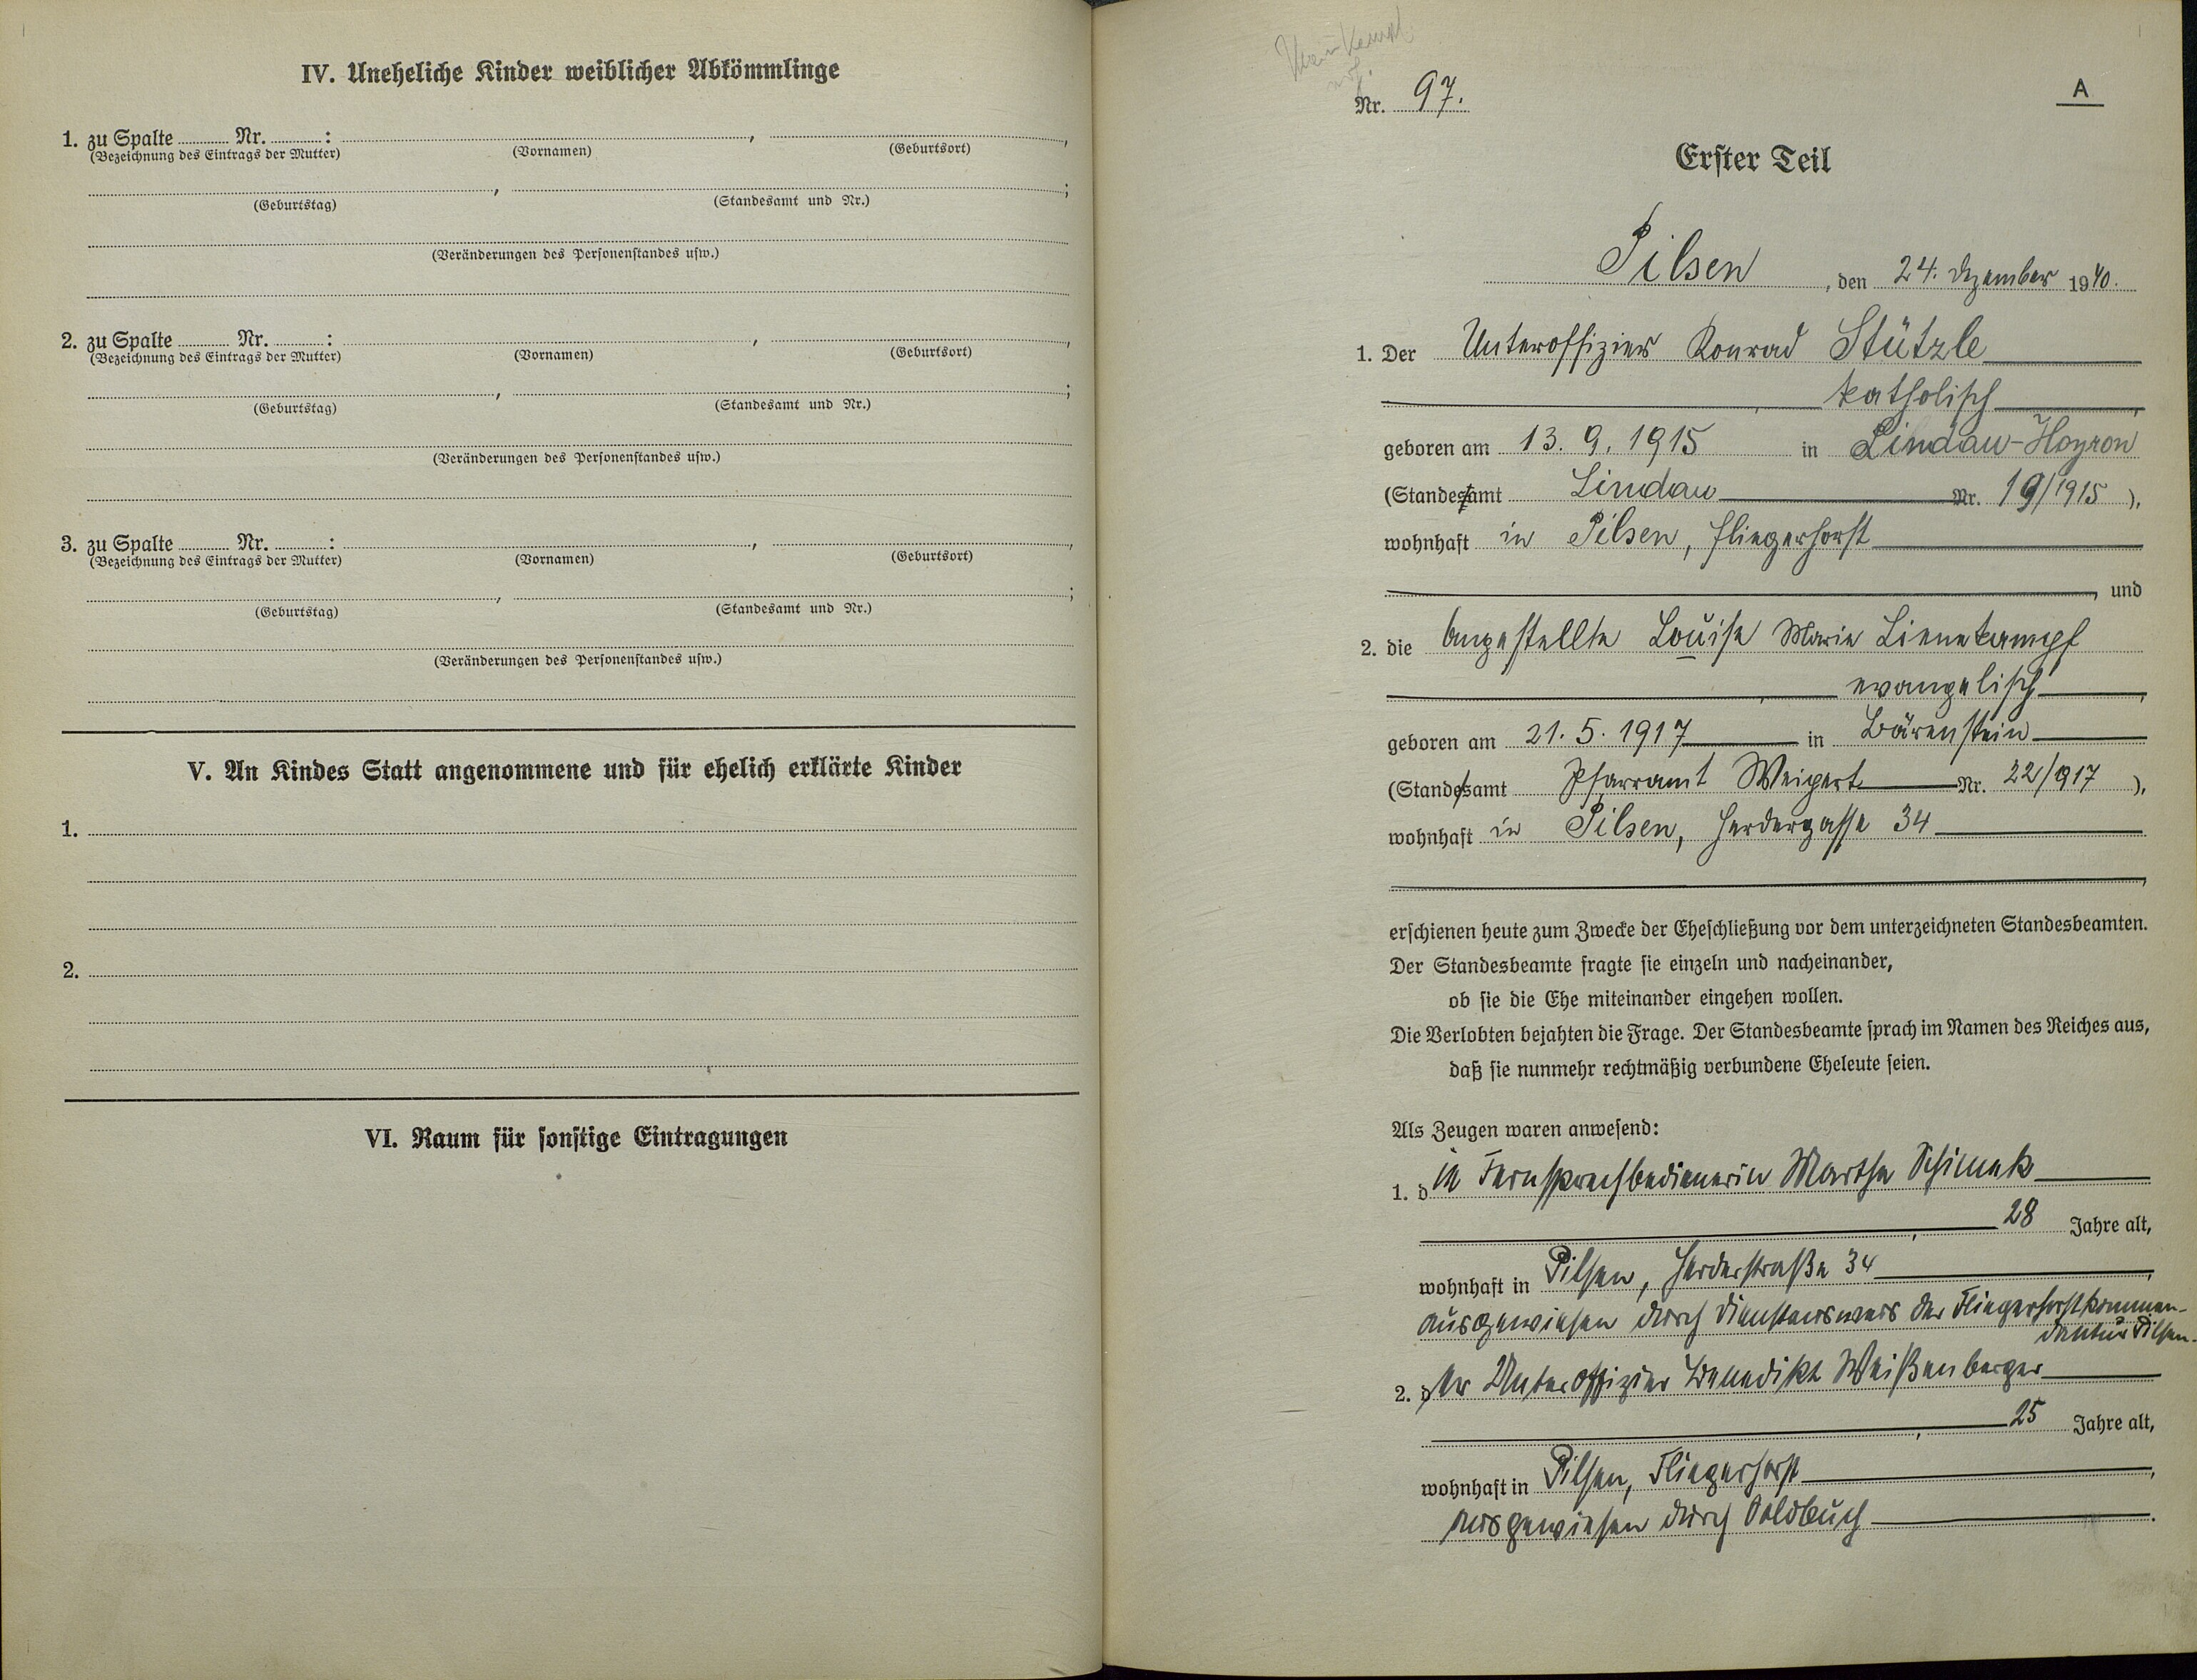 IV. Uneheliche Kinder weiblicher Abkömmlinge
1. zu Spalte ........ Nr. ........ : , ,
(Bezeichnung des Eintrags der Mutter) (Vornamen) (Geburtsort)
, ;
(Geburtstag) (Standesamt und Nr.)
(Veränderungen des Personenstandes usw.)
2. zu Spalte ........ Nr. ........ : , ,
(Bezeichnung des Eintrags der Mutter) (Vornamen) (Geburtsort)
, ;
(Geburtstag) (Standesamt und Nr.)
(Veränderungen des Personenstandes usw.)
3. zu Spalte ........ Nr. ........ : , ,
(Bezeichnung des Eintrags der Mutter) (Vornamen) (Geburtsort)
, ;
(Geburtstag) (Standesamt und Nr.)
(Veränderungen des Personenstandes usw.)
V. An Kindes Statt angenommene und für ehelich erklärte Kinder
1.
2.
VI. Raum für sonstige Eintragungen
Nr. 97.
A
Erster Teil
Pilsen, den 24. Dezember 1940.
1. Der Unteroffizier Konrad Stützle
, katholisch,
geboren am 13. 9. 1915 in Lindau-Hoyren
(Standesamt Lindau Nr. 19/1915 ),
wohnhaft in Pilsen, Fliegerhorst
, und
2. die Angestellte Louise Marie Lienekampf
, evangelisch,
geboren am 21. 5. 1917 in Bärenstein
(Standesamt Pfarramt Weipert Nr. 22/917 ),
wohnhaft in Pilsen, Herdergasse 34
,
erschienen heute zum Zwecke der Eheschließung vor dem unterzeichneten Standesbeamten.
Der Standesbeamte fragte sie einzeln und nacheinander,
ob sie die Ehe miteinander eingehen wollen.
Die Verlobten bejahten die Frage. Der Standesbeamte sprach im Namen des Reiches aus,
daß sie nunmehr rechtmäßig verbundene Eheleute seien.
Als Zeugen waren anwesend:
1. die Fernsprechbedienerin Martha Schimek
, 28 Jahre alt,
wohnhaft in Pilsen, Herderstraße 34,
ausgewiesen durch Dienstausweis der Fliegerhorstkomman-
dantur Pilsen.
2. der Unteroffizier Benedikt Weißenberger
, 25 Jahre alt,
wohnhaft in Pilsen, Fliegerhorst,
ausgewiesen durch Soldbuch.